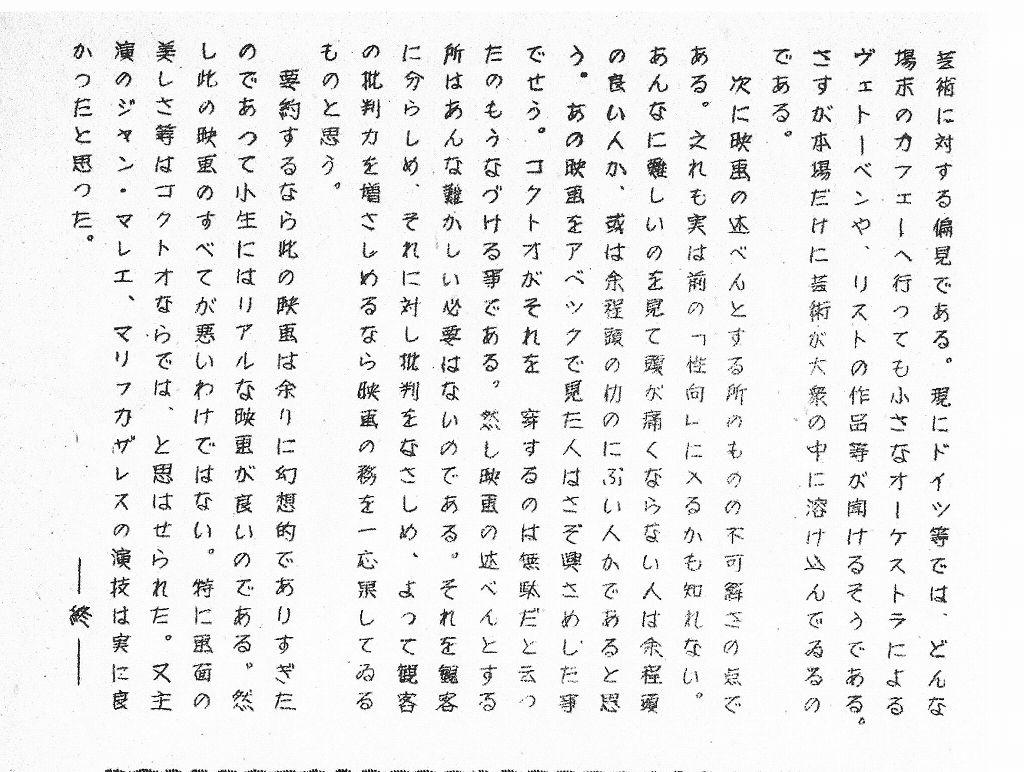 芸術に対する偏見である。現にドイツ等では、どんな
場末のカフェーへ行つても小さなオーケストラによる
ヴェトーベンや、リストの作品等が聞けるそうである。
さすが本場だけに芸術が大衆の中に溶け込んでゐるの
である。
次に映画の述べんとする所のものの不可解さの点で
ある。之れも実は前の「性向」に入るかも知れない。
あんなに難しいのを見て頭が痛くならない人は余程頭
の良い人か、或は余程頭の切のにぶい人かであると思
う。あの映画をアベックで見た人はさぞ興さめした事
でせう。コクトオがそれを 穿するのは無駄だと云つ
たのもうなづける事である。然し映画の述べんとする
所はあんな難かしい必要はないのである。それを観客
に分らしめ、それに対し批判をなさしめ、よつて観客
の批判力を増さしめるなら映画の務を一応果してゐる
ものと思う。
要約するなら此の映画は余りに幻想的でありすぎた
のであつて小生にはリアルな映画が良いのである。然
し此の映画のすべてが悪いわけではない。特に画面の
美しさ等はコクトオならでは、と思はせられた。又主
演のジャン・マレエ、マリフカザレスの演技は実に良
かつたと思つた。
——終——